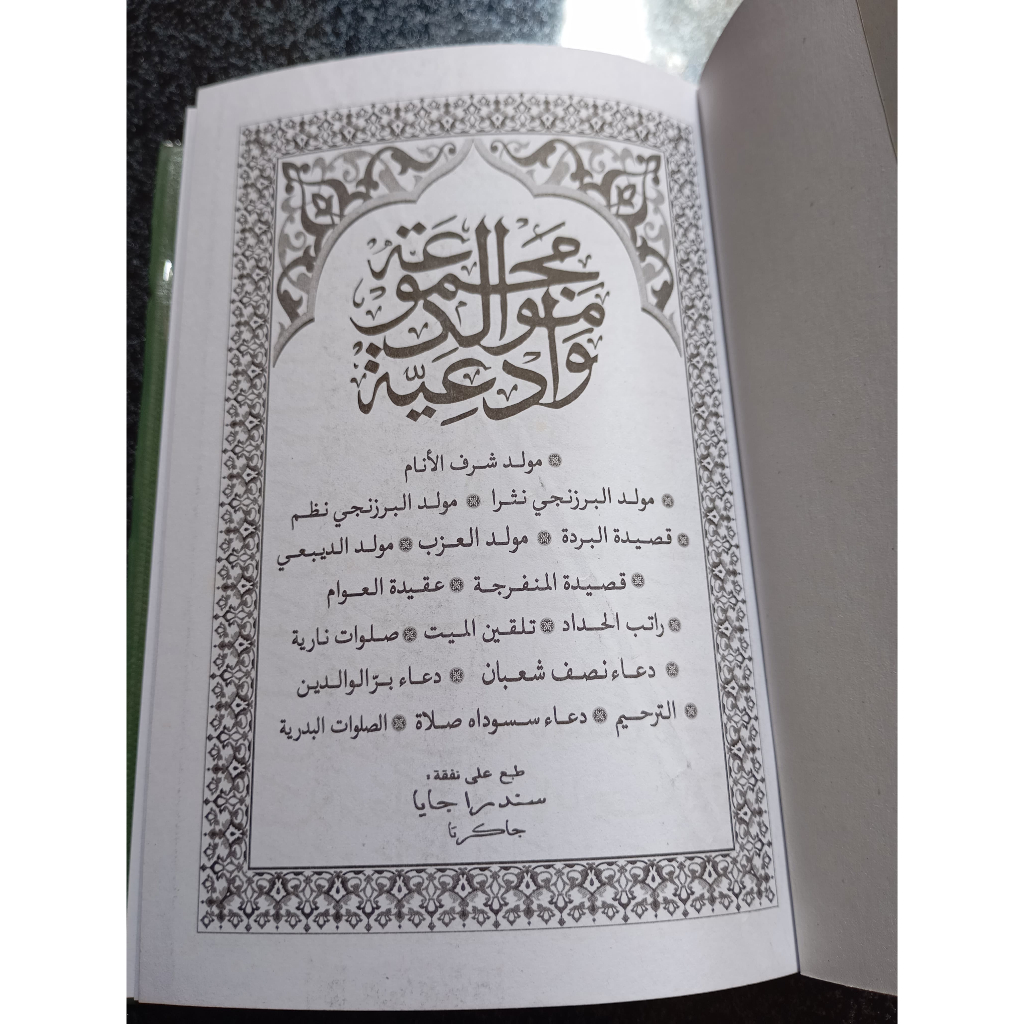 مجموعة
موالد
وأدعية
مولد شرف الأنام
مولد البرزنجي نثرا مولد البرزنجي نظم
قصيدة البردة مولد العزب مولد الديبعي
قصيدة المنفرجة عقيدة العوام
راتب الحداد تلقين الميت صلوات نارية
دعاء نصف شعبان دعاء برّ الوالدين
الترحيم دعاء سسوداه صلاة الصلوات البدرية
طبع على نفقة :
سندرا جايا
جاكرتا